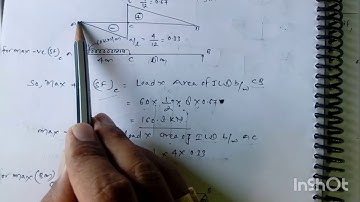 8/12 = 0.67
A (-) C (+) B
a/l = 4/12 = 0.33
for max -ve (SF)c A C B
4m 8m
So, Max (SF)c = Load x Area of ILD b/w CB
= 60 x 1/2 x 8 x 0.67
= 160.8 KN
max Load x area of ILD b/w AC
x 4 x 0.33
for max (BM)
Made with
InShOt